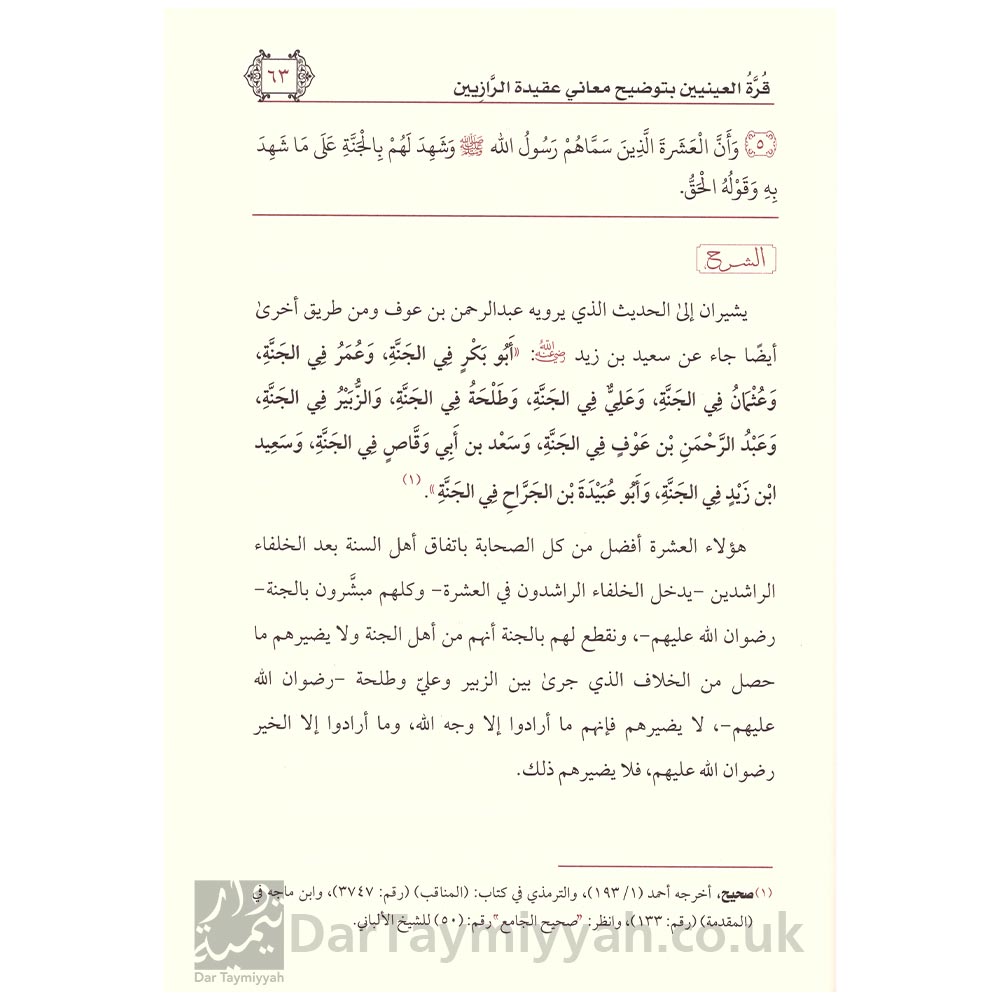 قُرَّةُ العينيين بتوضيح معاني عقيدة الرَّازِيين
٦٣
٥ وَأَنَّ الْعَشَرَةَ الَّذِينَ سَمَّاهُمْ رَسُولُ الله ﷺ وَشَهِدَ لَهُمْ بِالْجَنَّةِ عَلَى مَا شَهِدَ
بِهِ وَقَوْلُهُ الْحَقُّ.
الشرح
يشيران إلىٰ الحديث الذي يرويه عبدالرحمن بن عوف ومن طريق أخرىٰ
أيضًا جاء عن سعيد بن زيد رضي الله عنه: «أَبُو بَكْرٍ فِي الجَنَّةِ، وَعُمَرُ فِي الجَنَّةِ،
وَعُثْمَانُ فِي الجَنَّةِ، وَعَلِيٌّ فِي الجَنَّةِ، وَطَلْحَةُ فِي الجَنَّةِ، وَالزُّبَيْرُ فِي الجَنَّةِ،
وَعَبْدُ الرَّحْمَنِ بْن عَوْفٍ فِي الجَنَّةِ، وَسَعْد بن أَبِي وَقَّاصٍ فِي الجَنَّةِ، وَسَعِيد
ابْن زَيْدٍ فِي الجَنَّةِ، وَأَبُو عُبَيْدَةَ بْن الجَرَّاحِ فِي الجَنَّةِ». (١)
هؤلاء العشرة أفضل من كل الصحابة باتفاق أهل السنة بعد الخلفاء
الراشدين -يدخل الخلفاء الراشدون في العشرة- وكلهم مبشَّرون بالجنة-
رضوان الله عليهم-، ونقطع لهم بالجنة أنهم من أهل الجنة ولا يضيرهم ما
حصل من الخلاف الذي جرىٰ بين الزبير وعليّ وطلحة -رضوان الله
عليهم-، لا يضيرهم فإنهم ما أرادوا إلا وجه الله، وما أرادوا إلا الخير
رضوان الله عليهم، فلا يضيرهم ذلك.
(١) صحيح، أخرجه أحمد (١/ ١٩٣)، والترمذي في كتاب: (المناقب) (رقم: ٣٧٤٧)، وابن ماجه في
(المقدمة) (رقم: ١٣٣)، وانظر: "صحيح الجامع" رقم: (٥٠) للشيخ الألباني.
دار تيمية
Dar Taymiyyah
DarTaymiyyah.co.uk